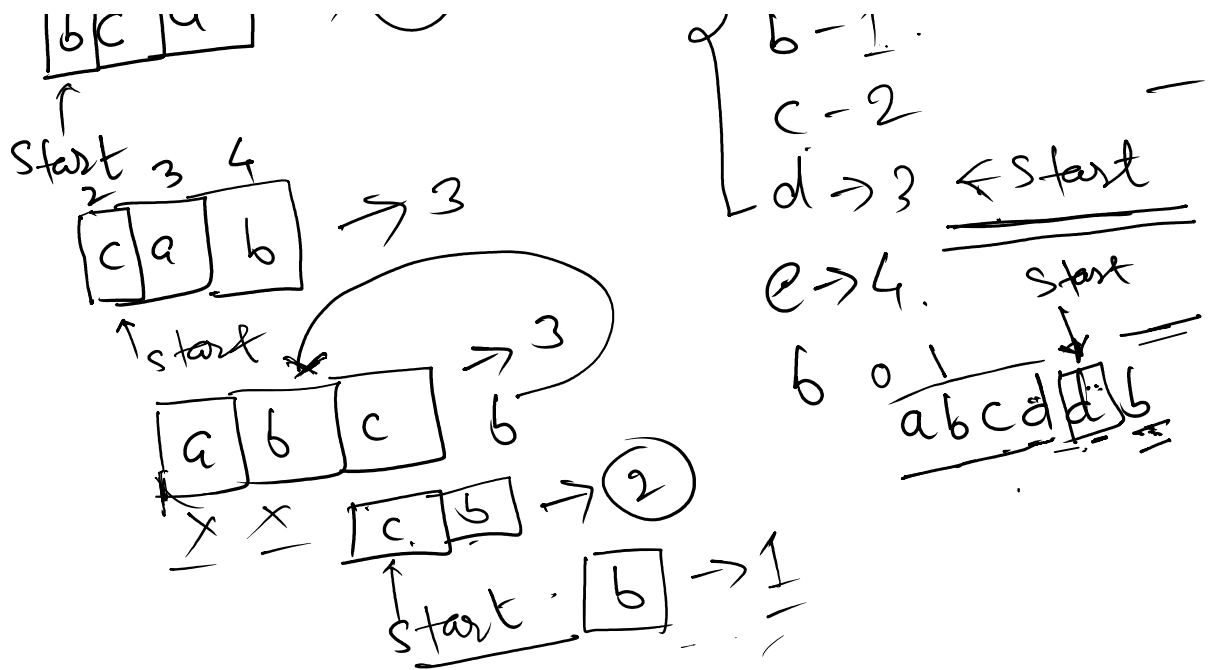 b c a
start
2 3 4
c a b → 3
start
a b c → 3
b
x x
c b → 2
start
b → 1
b - 1.
c - 2
d → 3 ← start
e → 4.
start
b 0 1
a b c d d b